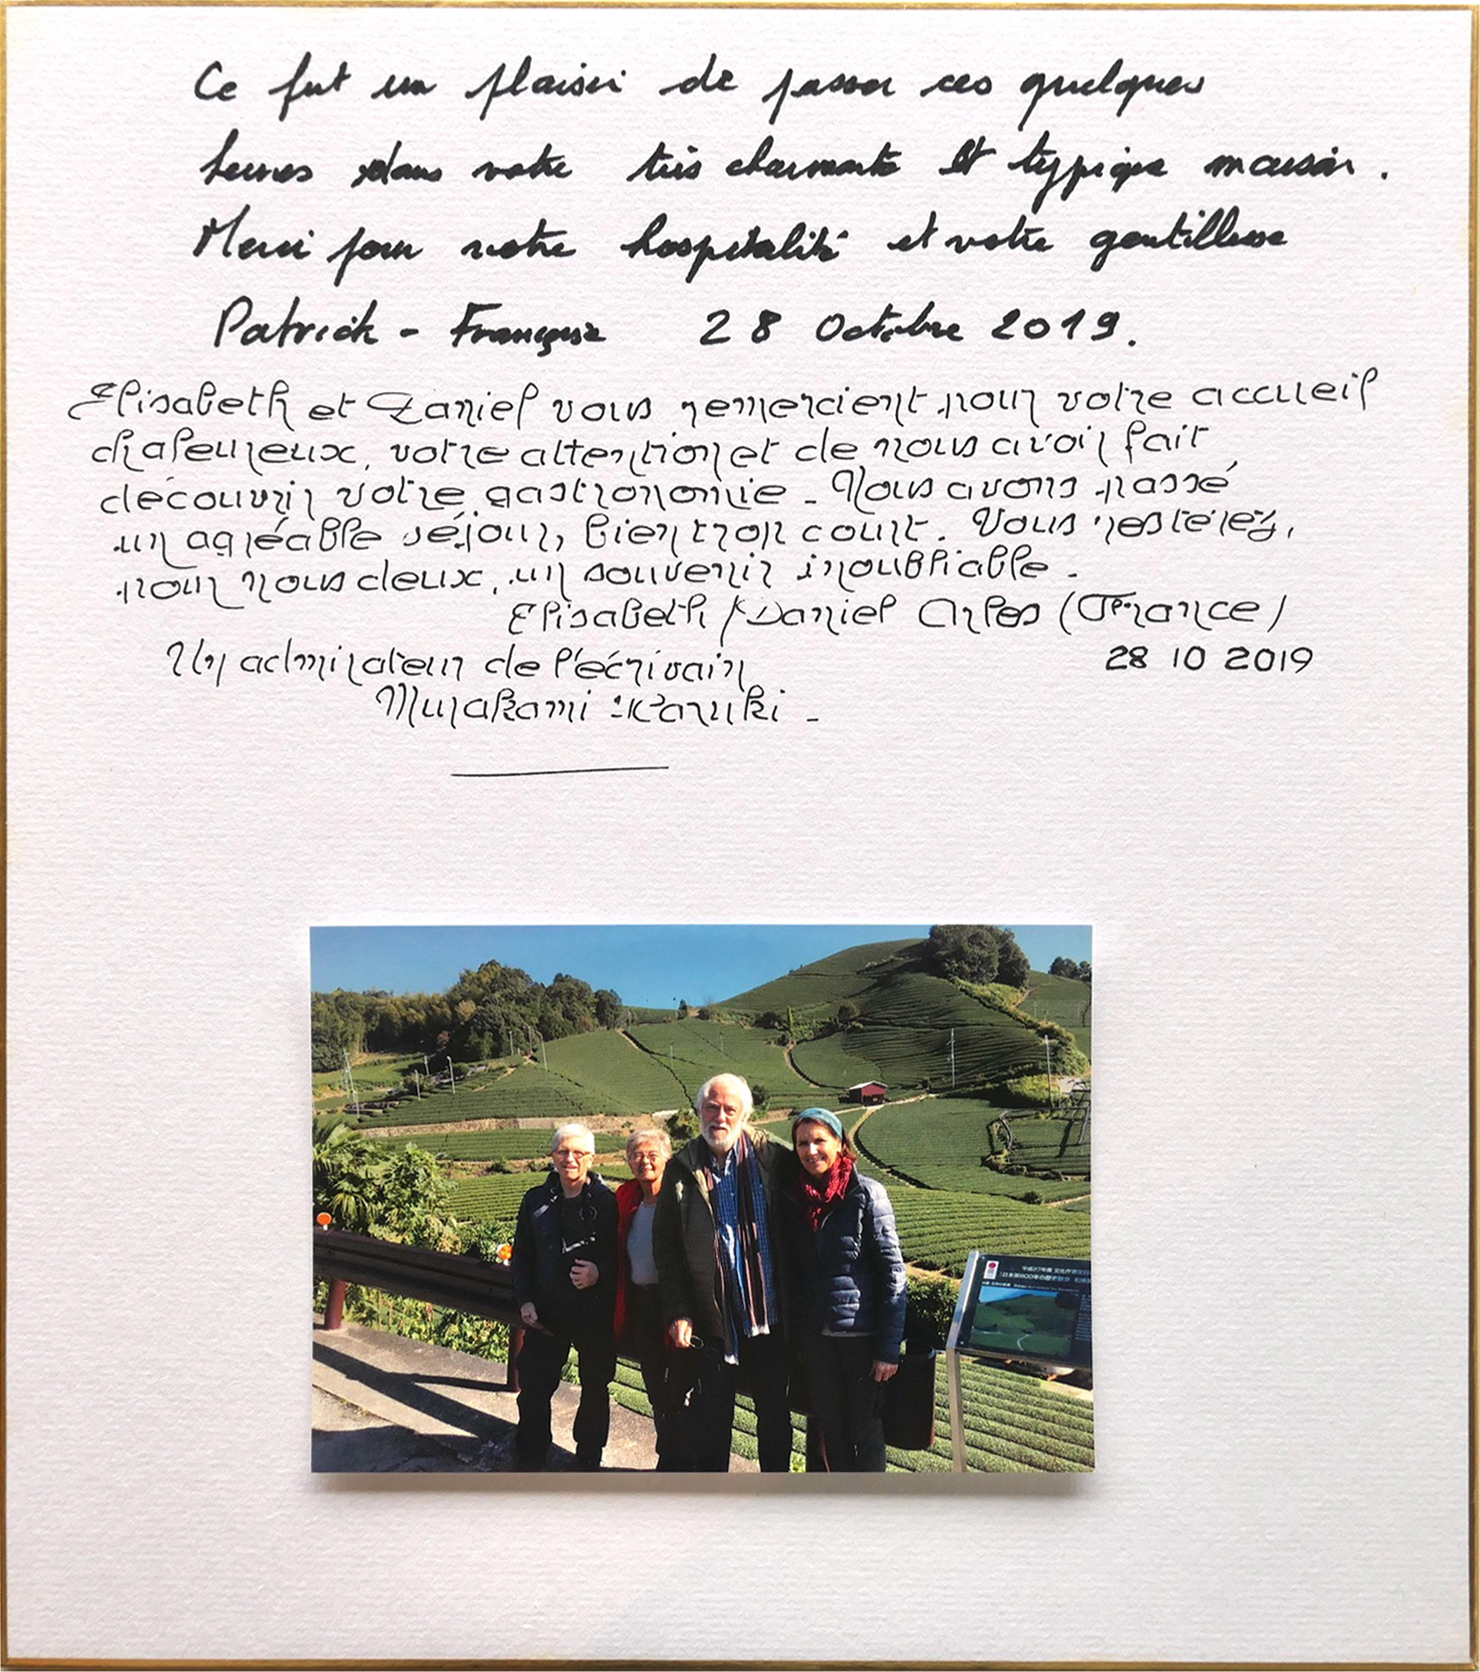 Ce fut un plaisir de passer ces quelques
heures dans votre très charmante et typique maison.
Merci pour votre hospitalité et votre gentillesse
Patrick - Françoise 28 Octobre 2019.
Elisabeth et Daniel vous remercient pour votre accueil
chaleureux, votre attention et de nous avoir fait
découvrir votre gastronomie - Nous avons passé
un agréable séjour, bien trop court. Vous resterez,
pour nous deux, un souvenir inoubliable -
Elisabeth / Daniel (France)
Un admirateur de l'écrivain 28 10 2019
Murakami Haruki -
平成27年度 文化庁
「日本茶800年の歴史散歩